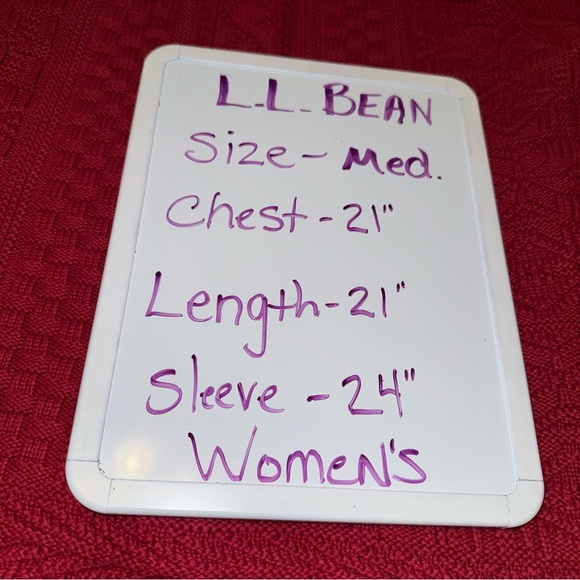 L.L. BEAN
Size - Med.
Chest - 21"
Length - 21"
Sleeve - 24"
Women's